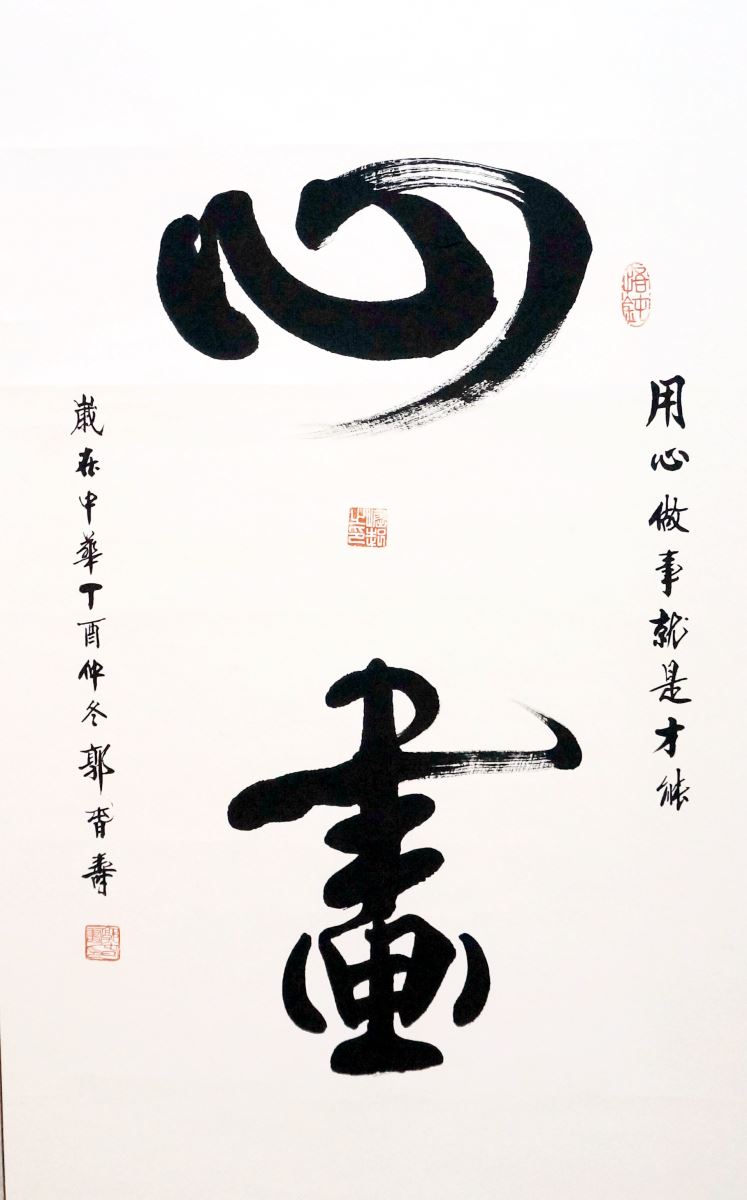 心畫
用心做事就是才能
歲在中華丁酉仲冬郭